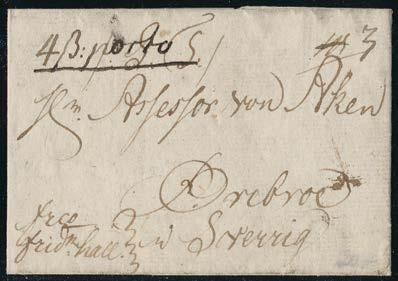 4 β: porto
3
Hr. Assessor von Aken
Örebroe
frco
fridr.hall. i Sverrig